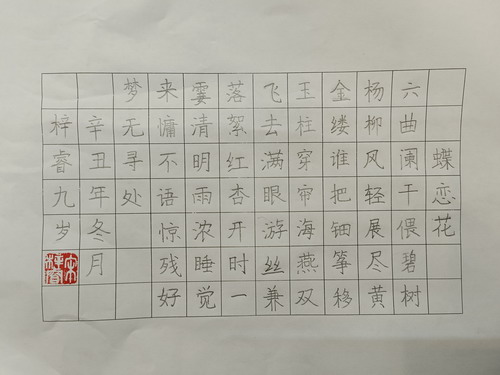 蝶恋花
六曲阑干偎碧树
杨柳风轻展尽黄
金缕谁把钿筝移
玉柱穿帘海燕双
飞去满眼游丝兼
落絮红杏开时一
霎清明雨浓睡觉
来慵不语惊残好
梦无寻处
辛丑年冬月
梓睿九岁
宋梓睿